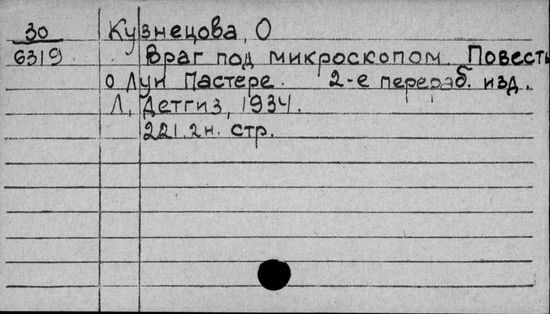 30 Кузнецова, О
6319 Враг под микроскопом. Повесть
о Луи Пастере. 2-е перераб. изд.
Л, Детгиз, 1934.
221.2н. стр.